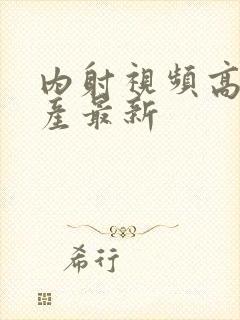 内射視頻高
産最新
希行